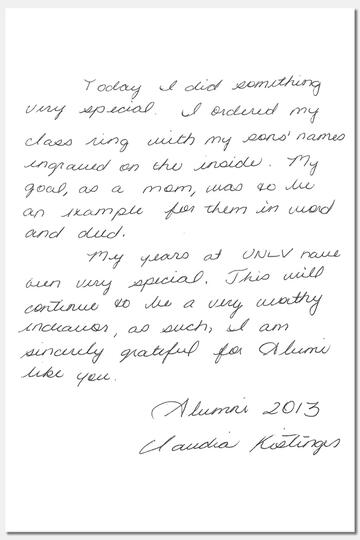 Today I did something
very special. I ordered my
class ring with my sons' names
engraved on the inside. My
goal, as a mom, was to be
an example for them in word
and deed.
My years at UNLV have
been very special. This will
continue to be a very worthy
endeavor, as such, I am
sincerely grateful for Alumi
like you.
Alumni 2013
Claudia